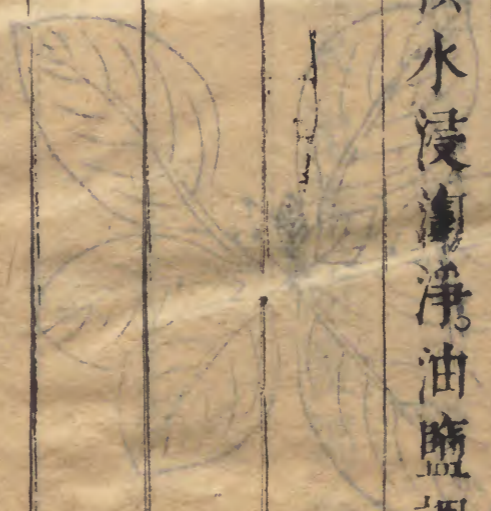 水浸淘淨。油鹽調